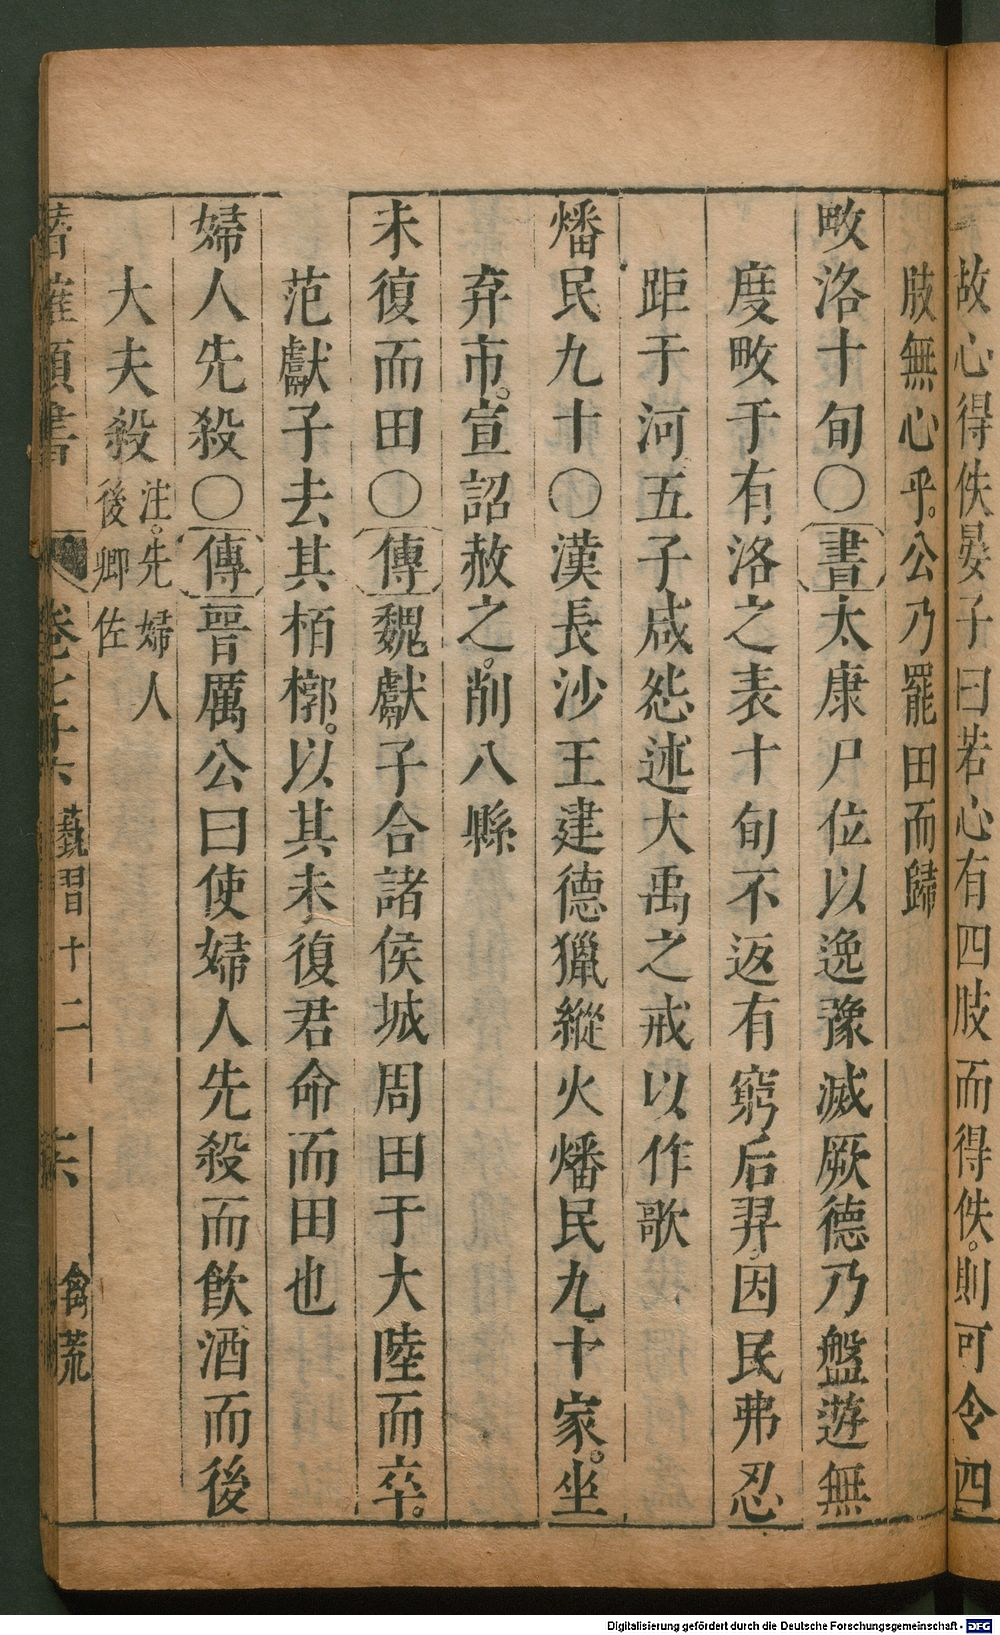 故心得佚晏子曰若心有四肢而得佚則可令四
肢無心乎公乃罷田而歸
畋洛十旬〇書太康尸位以逸豫滅厥德乃盤遊無
度畋于有洛之表十旬不返有窮后羿因民弗忍
距于河五子咸怨述大禹之戒以作歌
燔民九十〇漢長沙王建德獵縱火燔民九十家坐
弃市宣詔赦之削八縣
未復而田〇傳魏獻子合諸侯城周田于大陸而卒
范獻子去其栢槨以其未復君命而田也
婦人先殺〇傳晉厲公曰使婦人先殺而飲酒而後
大夫殺注先婦人後卿佐
類書 卷七十六 藝習十二 六 禽荒
Digitalisierung gefördert durch die Deutsche Forschungsgemeinschaft - DFG